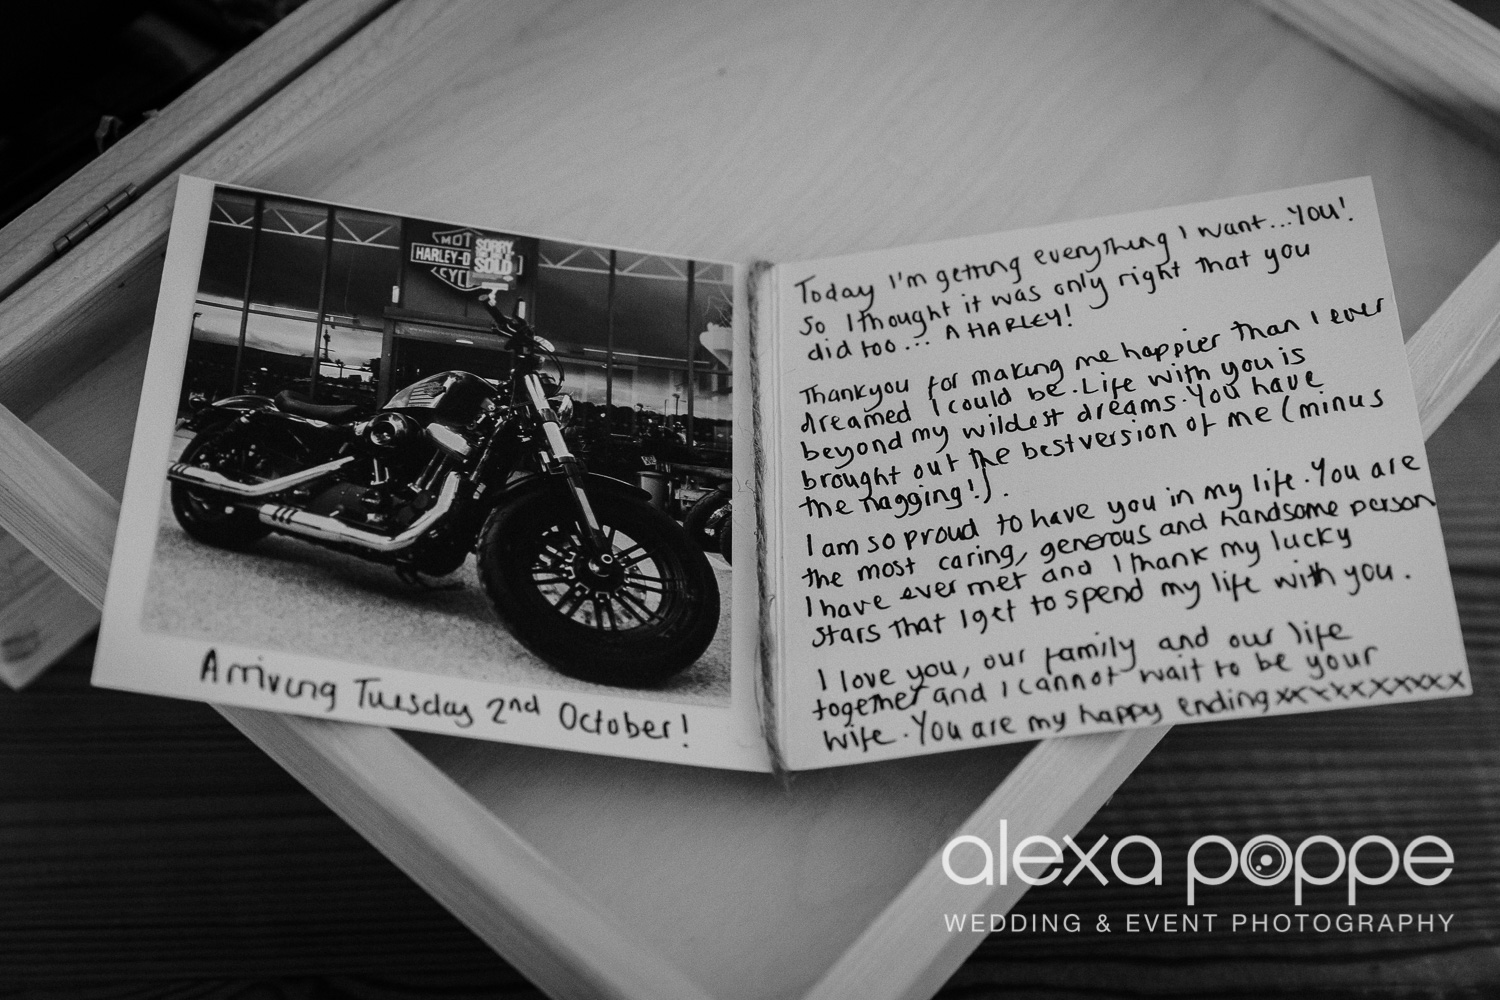 MOT
HARLEY-D
CYCL
SORRY
SOLD
Arriving Tuesday 2nd October!
Today I'm getting everything I want...You!
So I thought it was only right that you
did too... A HARLEY!
Thankyou for making me happier than I ever
dreamed I could be. Life with you is
beyond my wildest dreams. You have
brought out the best version of me (minus
the nagging!).
I am so proud to have you in my life. You are
the most caring, generous and handsome person
I have ever met and I thank my lucky
stars that I get to spend my life with you.
I love you, our family and our life
together and I cannot wait to be your
wife. You are my happy ending xxxxxxxxxx
alexa poppe
WEDDING & EVENT PHOTOGRAPHY